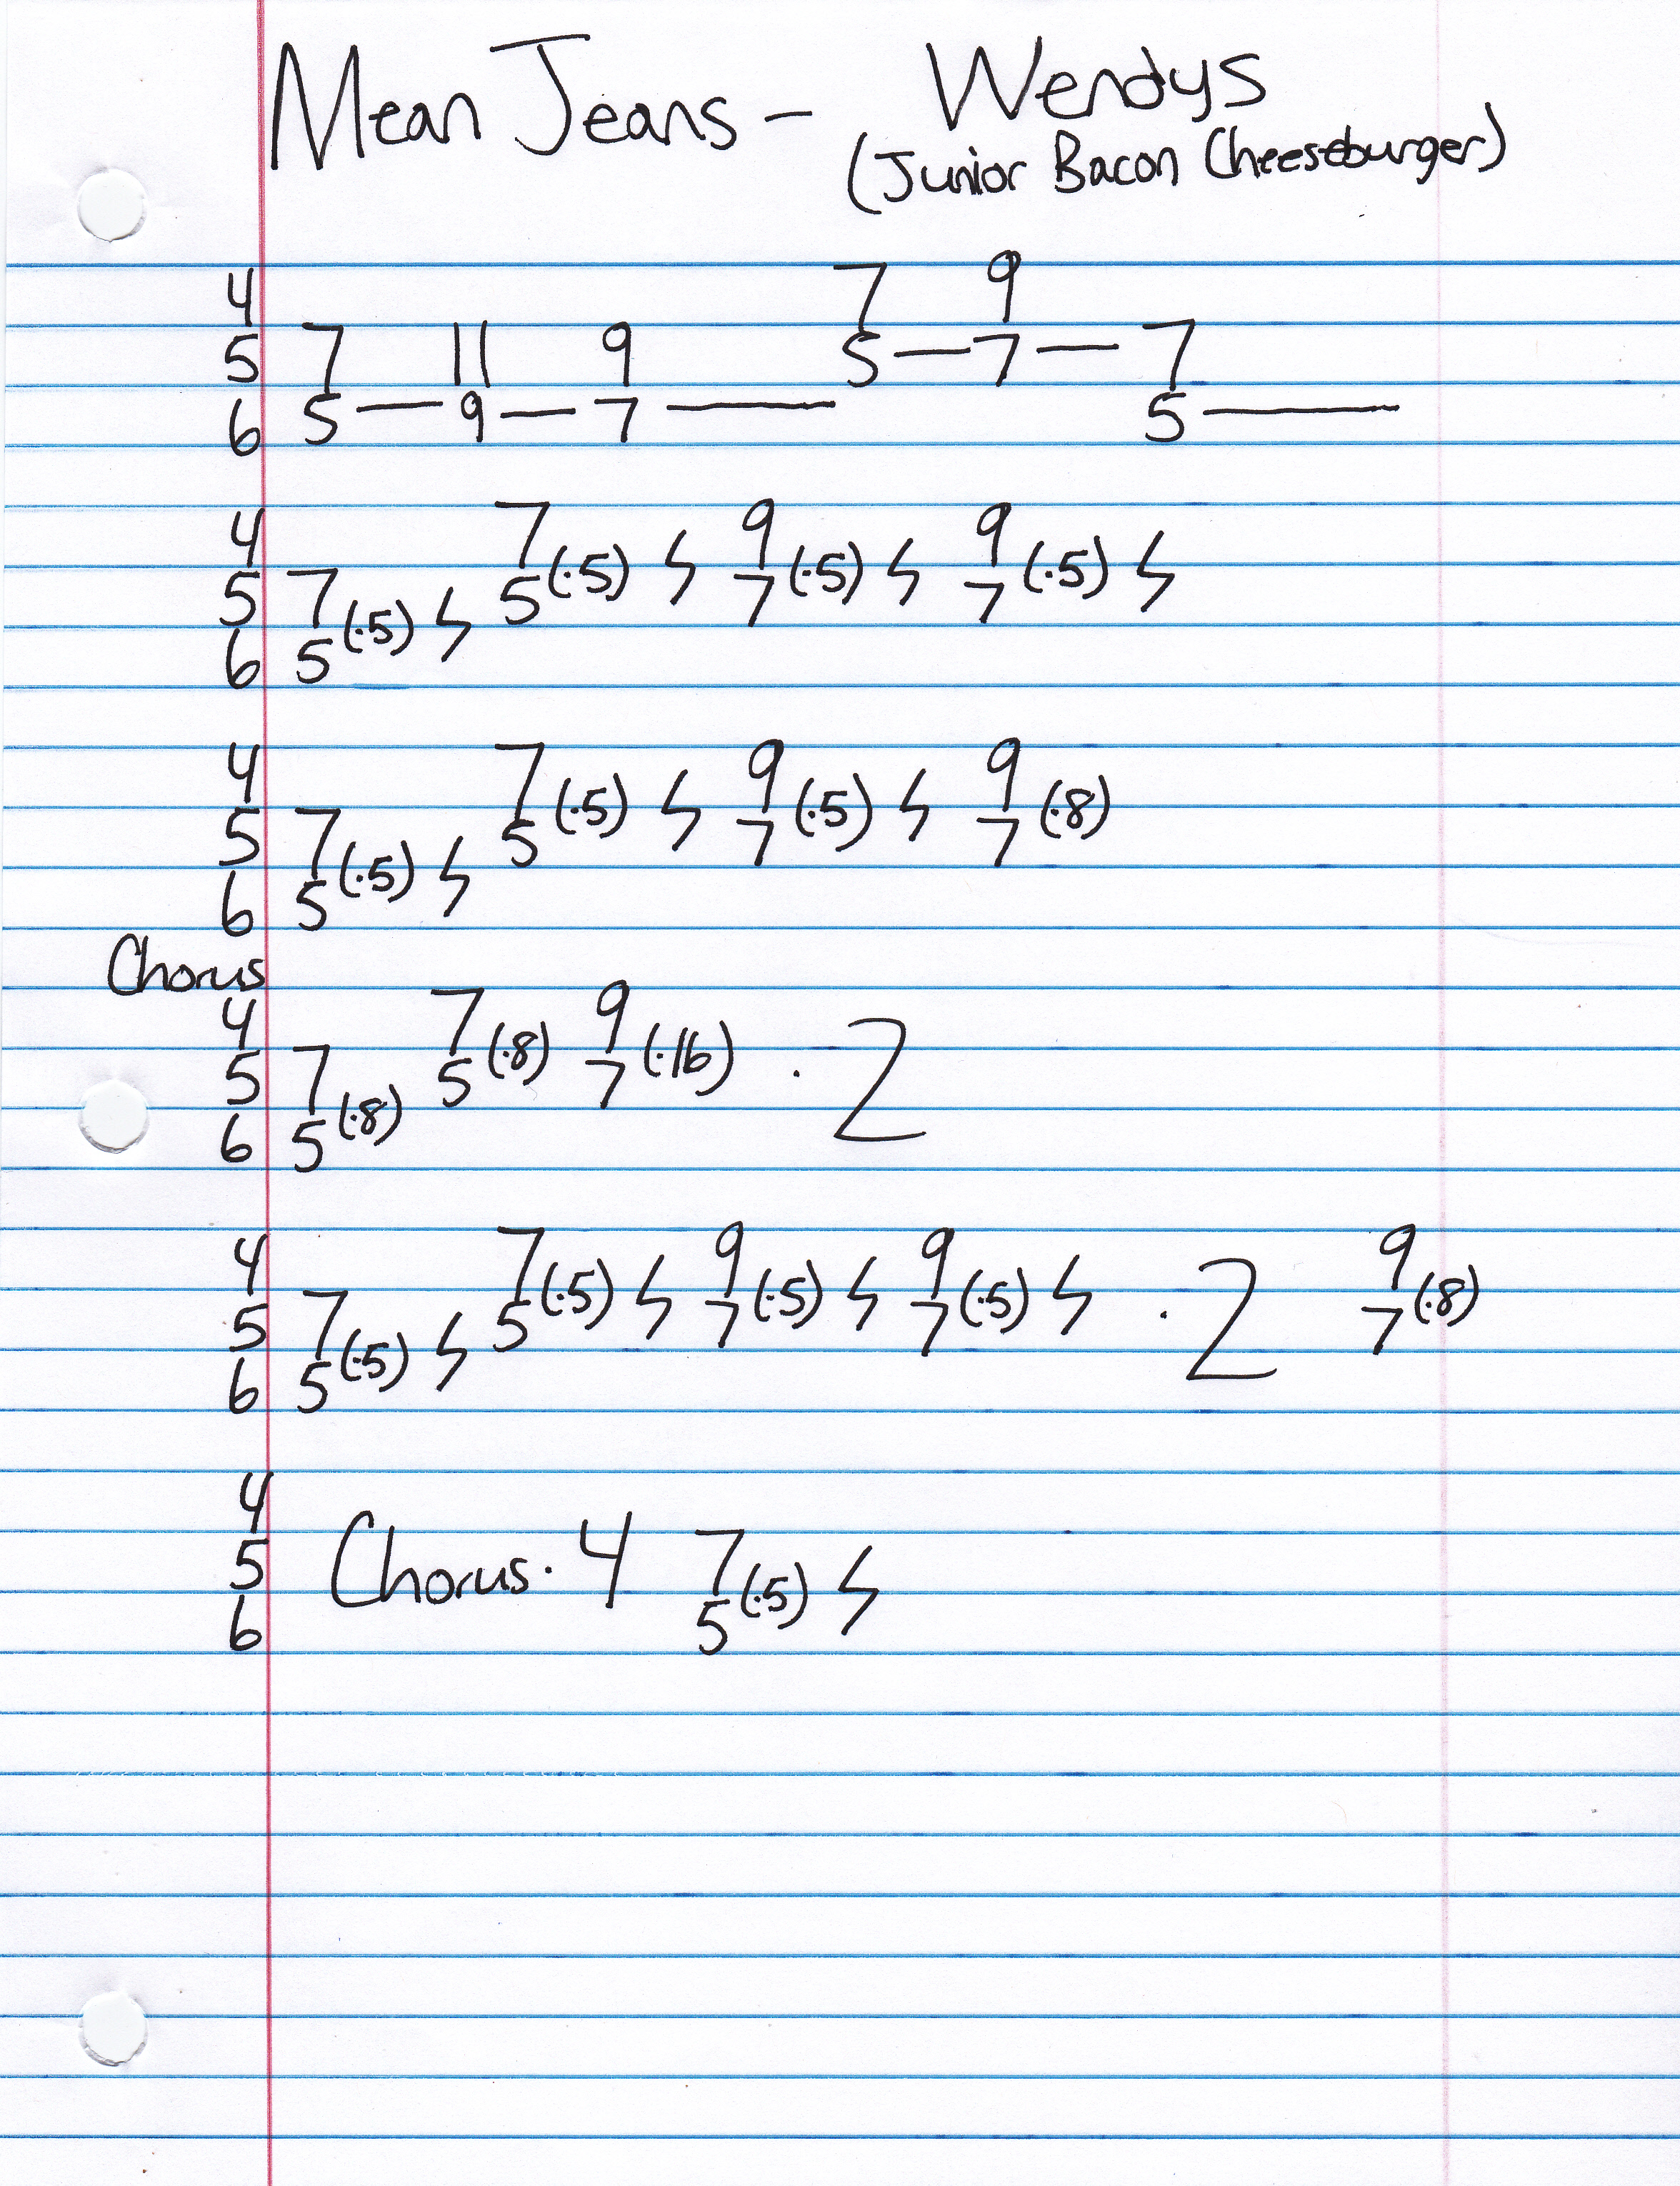 Mean Jeans - Wendys
(Junior Bacon Cheeseburger)
4 7 9
5 7 11 9 5 — 7 — 7
6 5 — 9 — 7 — 5 —
4 7 9 9
5 7 5 (·5) ϟ 7 (·5) ϟ 7 (·5) ϟ
6 5 (·5) ϟ
4 7 9 9
5 7 5 (·5) ϟ 7 (·5) ϟ 7 (·8)
6 5 (·5) ϟ
Chorus
4 7 9
5 7 5 (·8) 7 (·16) · 2
6 5 (·8)
4 7 9 9 9
5 7 5 (·5) ϟ 7 (·5) ϟ 7 (·5) ϟ · 2 7 (·8)
6 5 (·5) ϟ
4
5 Chorus · 4 7
6 5 (·5) ϟ